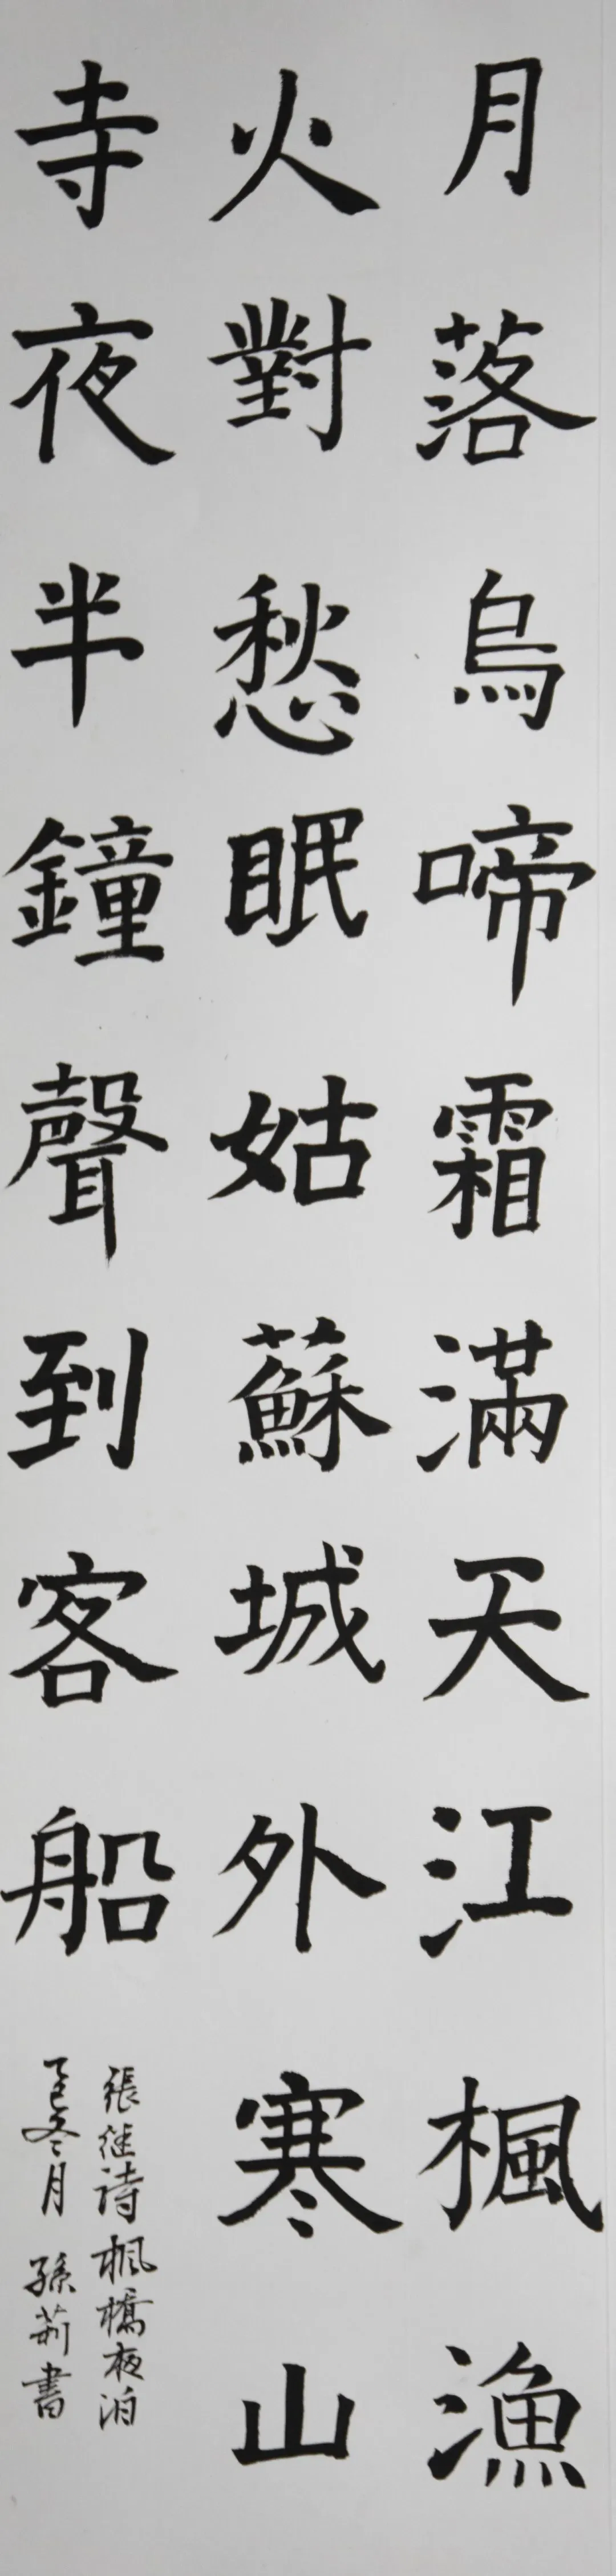 月落烏啼霜滿天江楓漁
火對愁眠姑蘇城外寒山
寺夜半鐘聲到客船
張继詩楓橋夜泊
乙巳冬月孫莉書